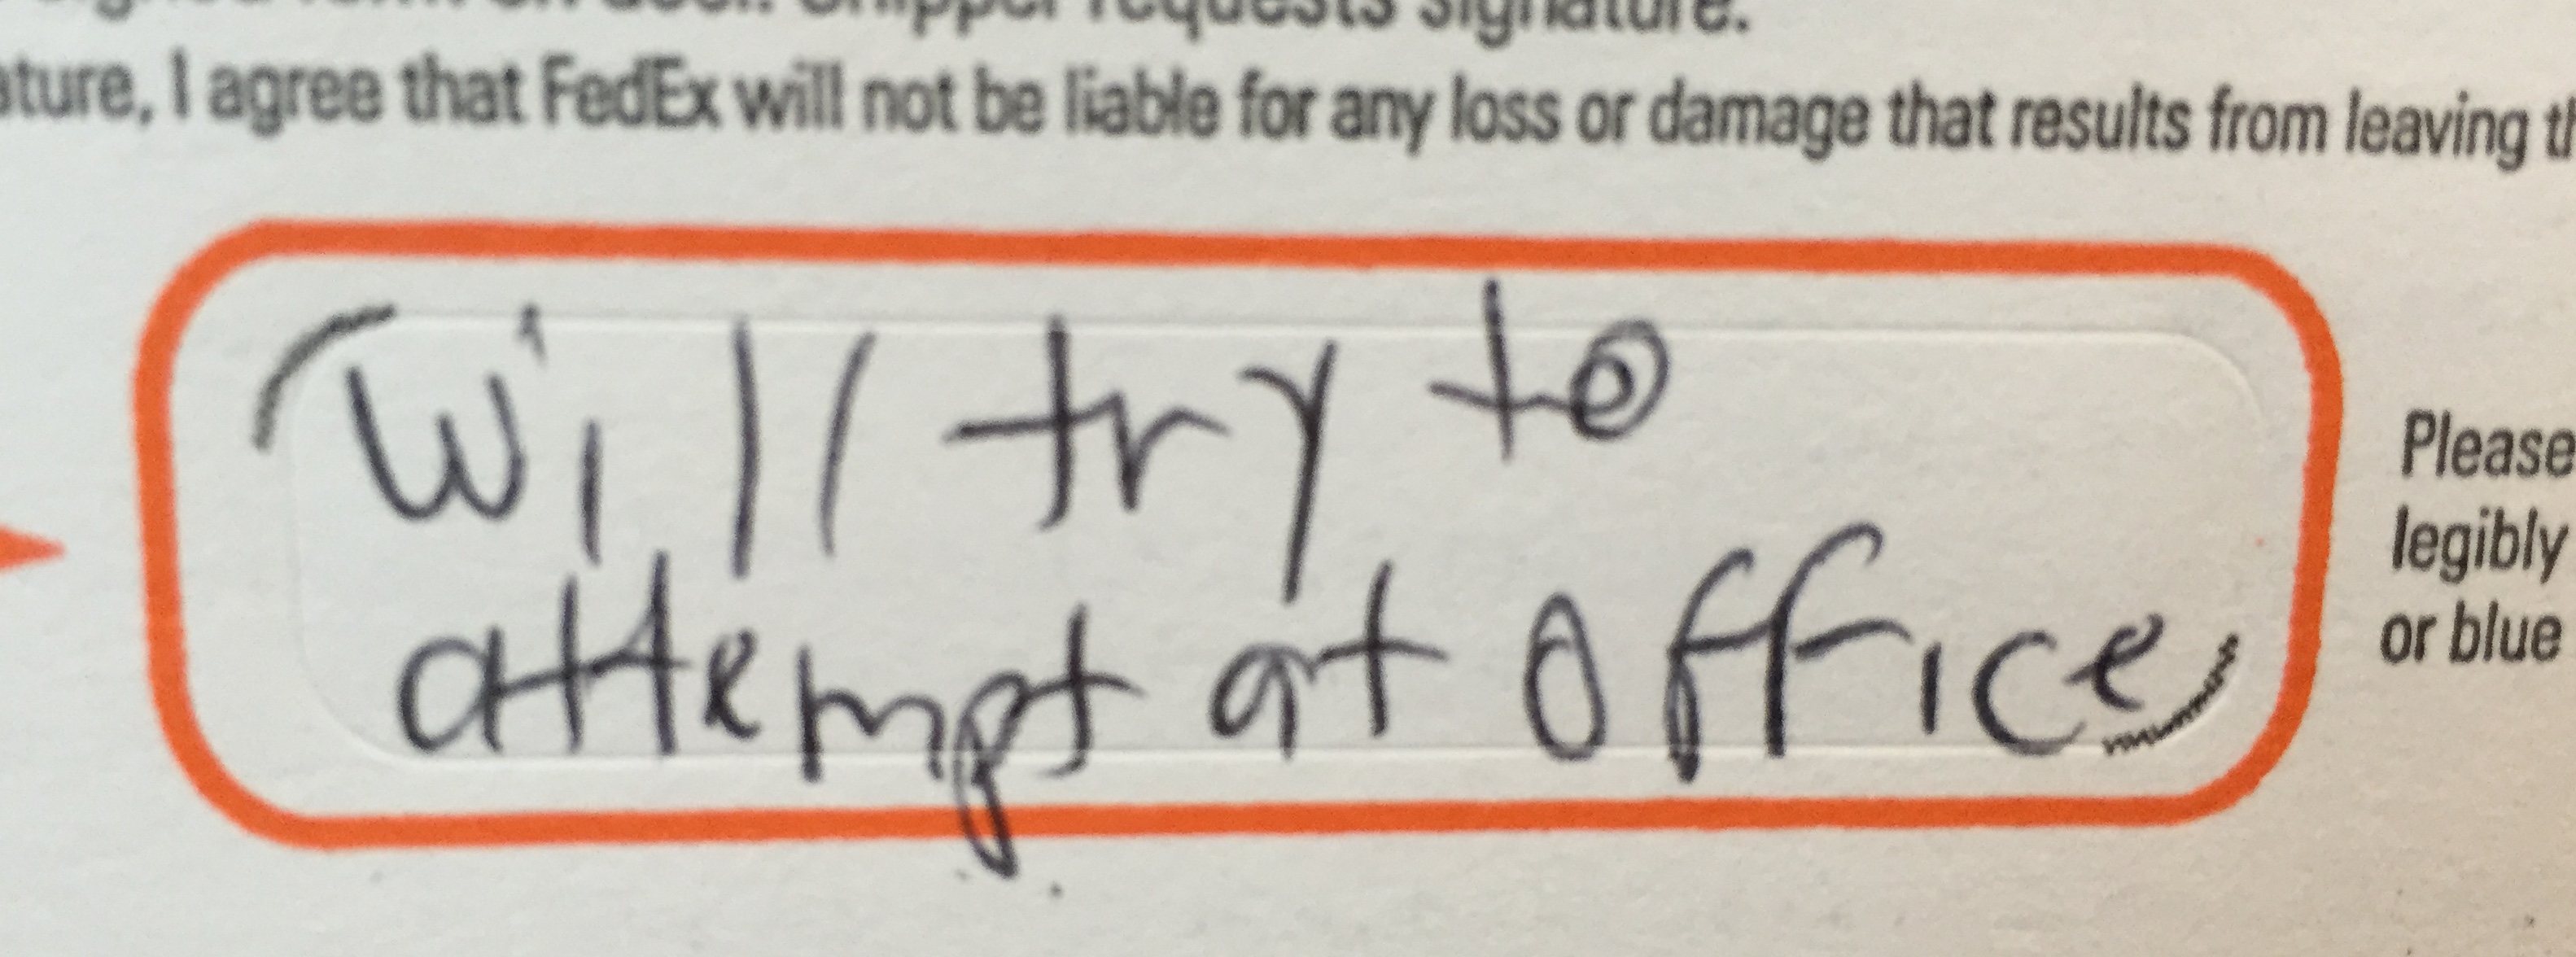 signed form on door. Shipper requests signature.
ature, I agree that FedEx will not be liable for any loss or damage that results from leaving th
Will try to
attempt at office
Please
legibly
or blue